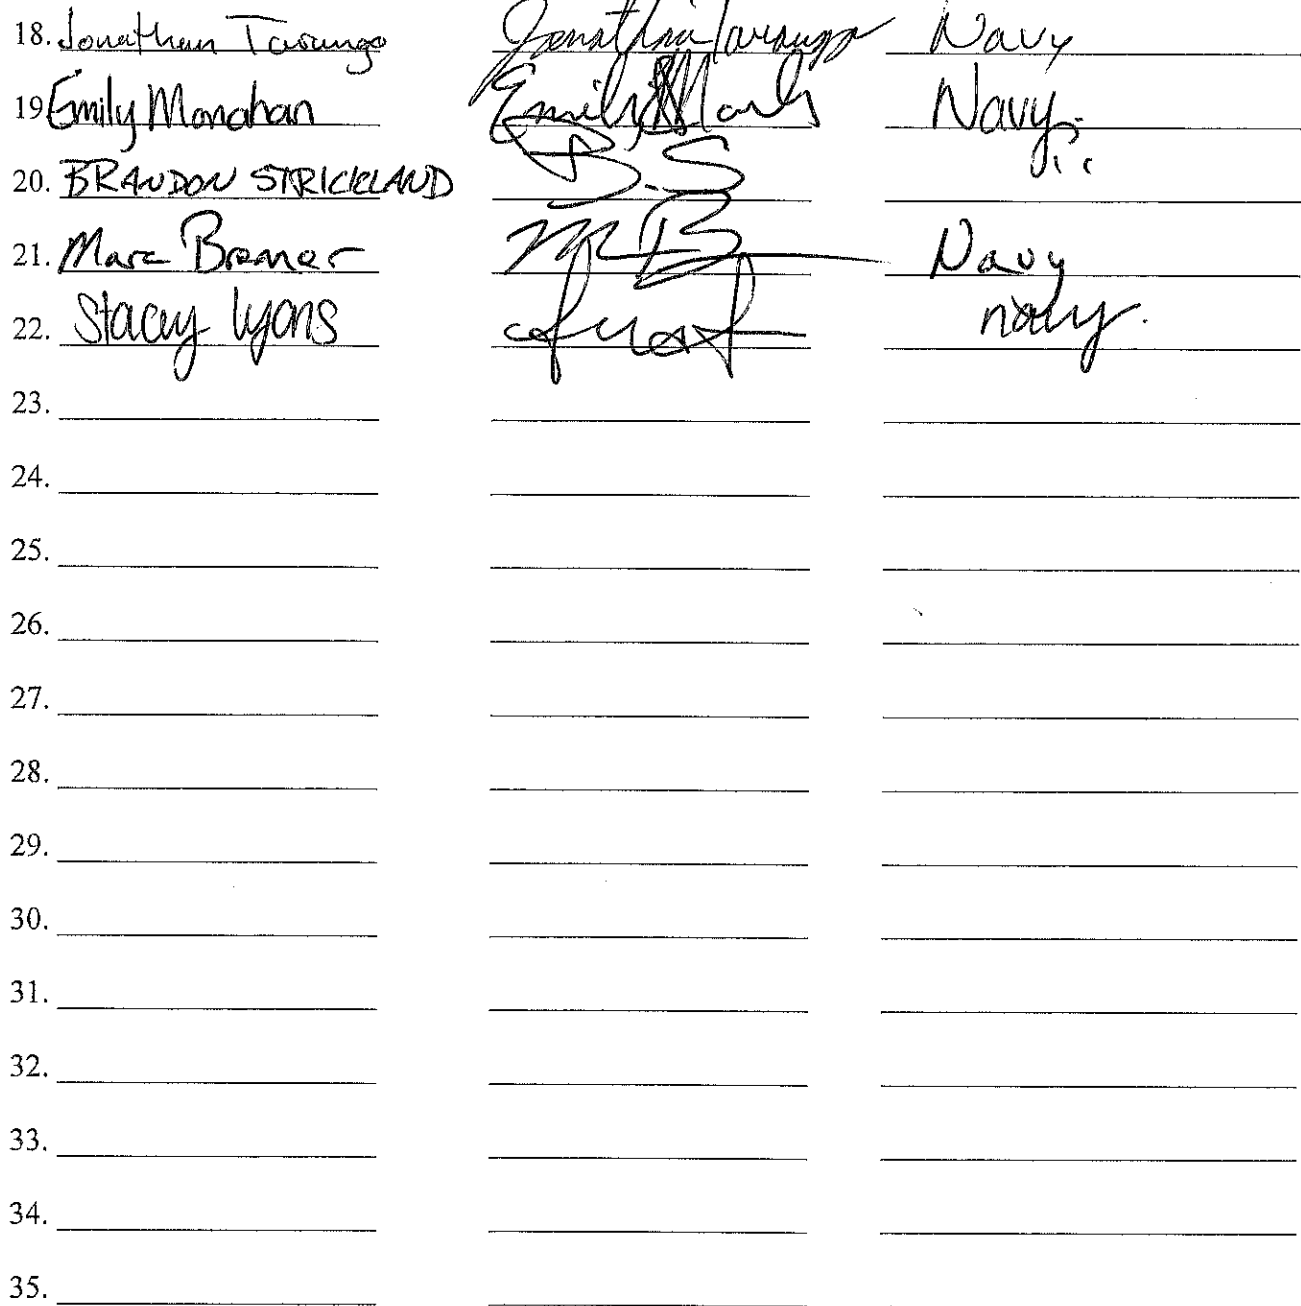 18. Jonathan Tarango Jonathan Tarango Navy
19 Emily Monahan Emily Navy
20. BRANDON STRICKLAND B.S "
21. Marc Bremer MB Navy
22. Stacey Lyons navy.
23.
24.
25.
26.
27.
28.
29.
30.
31.
32.
33.
34.
35.